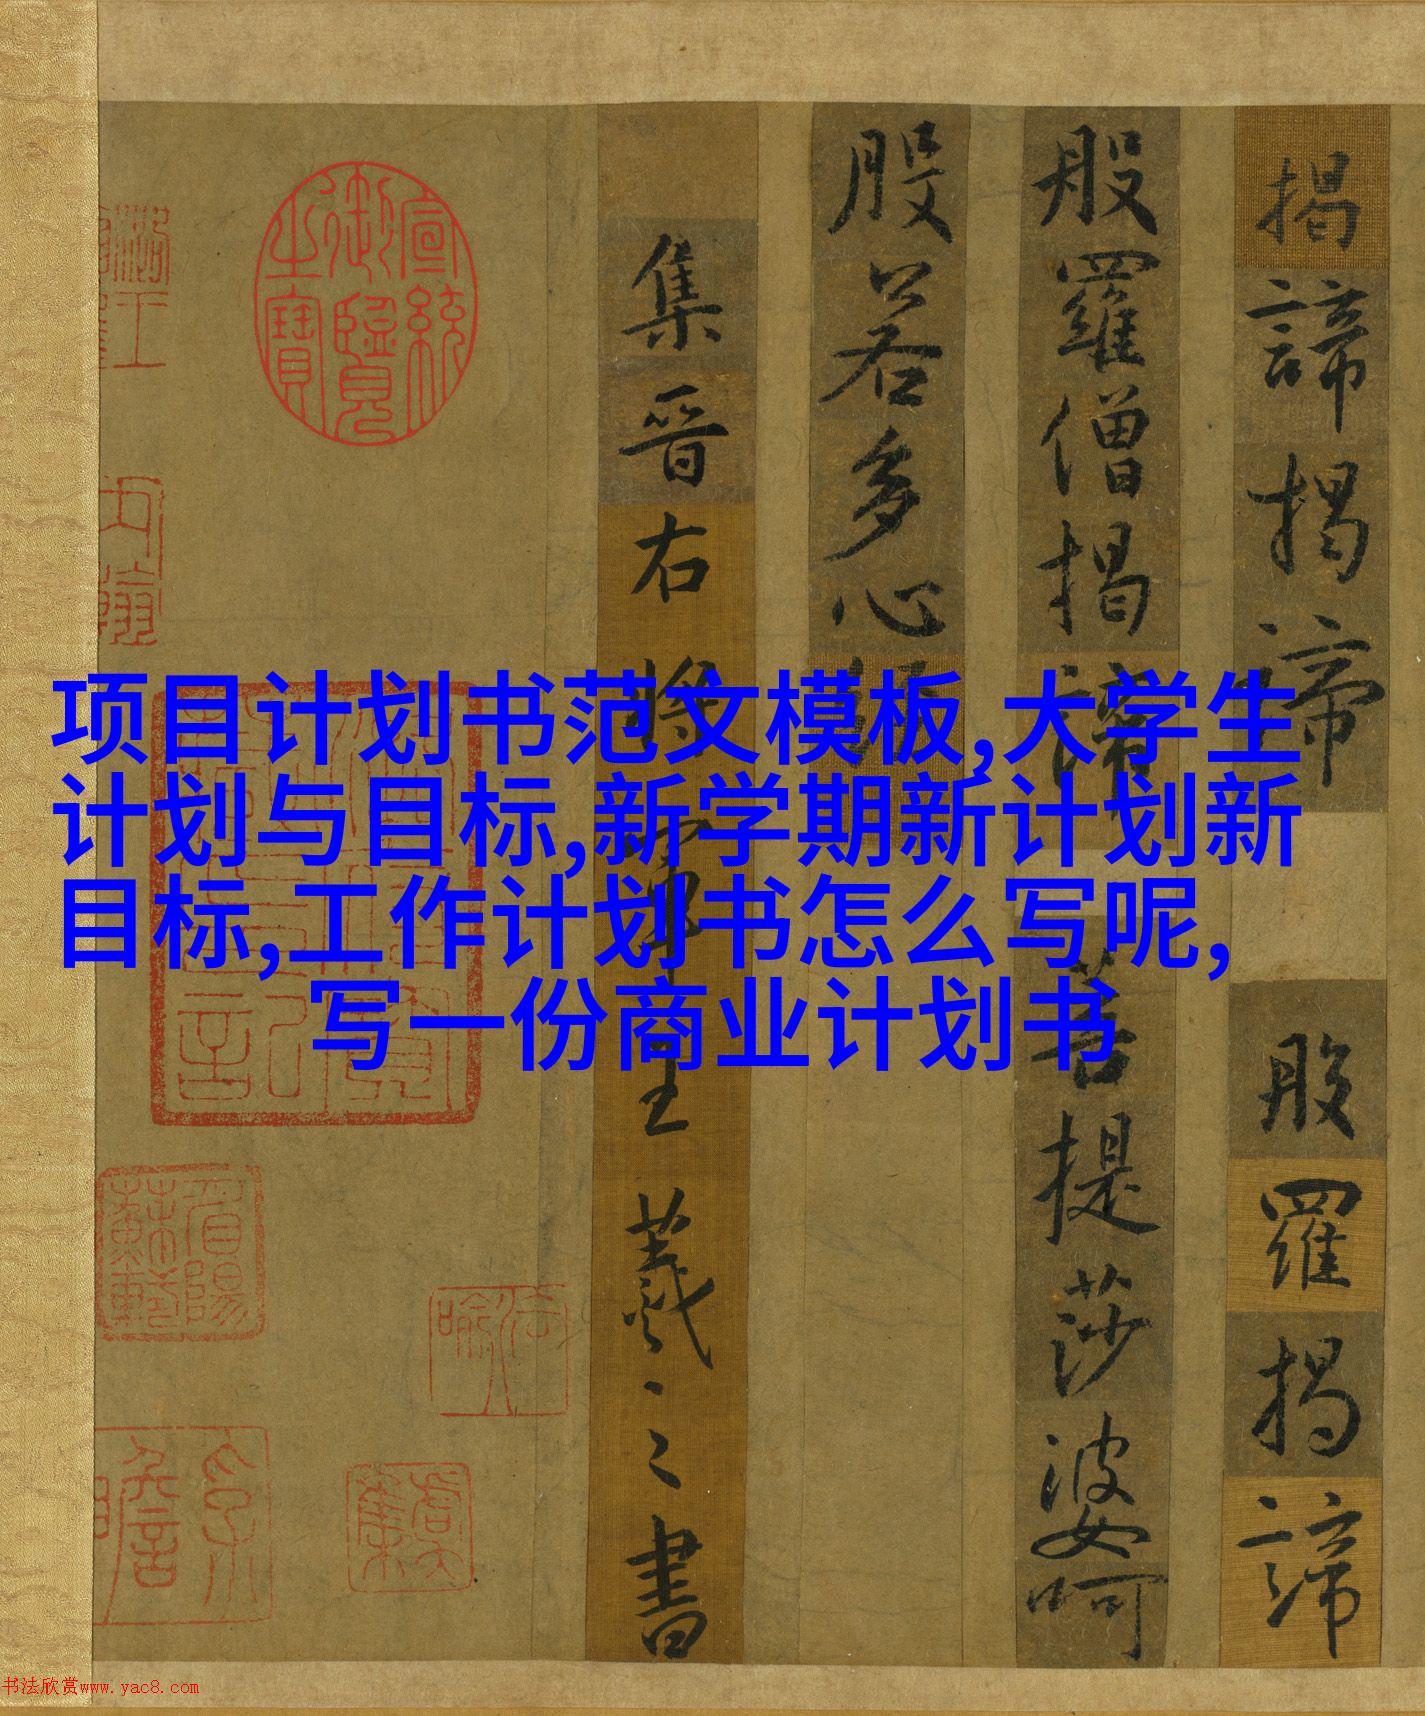 项目计划书范文模板,大学生
计划与目标,新学期新计划新
目标,工作计划书怎么写呢,
写一份商业计划书
揭諦揭諦 般羅揭諦
般羅僧揭諦 菩提莎婆呵
般若多心經
集晉右將軍王羲之書
宣統御覽之寶
书法欣赏www.yac8.com